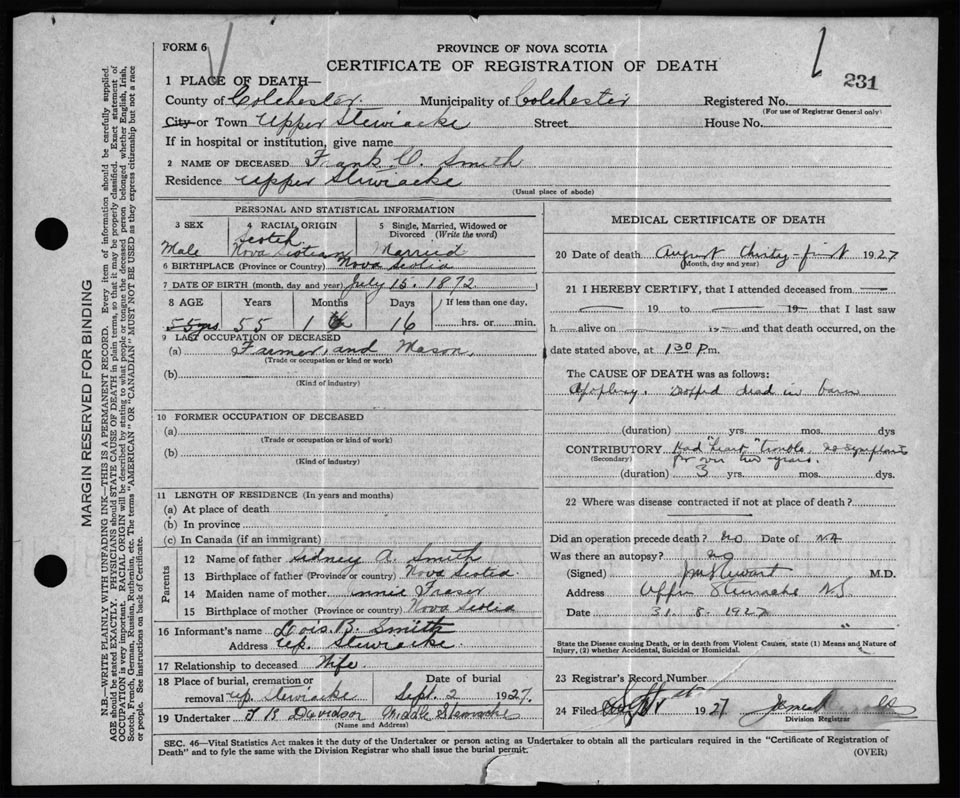 FORM 6
PROVINCE OF NOVA SCOTIA
CERTIFICATE OF REGISTRATION OF DEATH
231
1 PLACE OF DEATH—
County of Colchester Municipality of Colchester Registered No.
(For use of Registrar General only)
City or Town Upper Stewiacke Street House No.
If in hospital or institution, give name
2 NAME OF DECEASED Frank O. Smith
Residence Upper Stewiacke
(Usual place of abode)
PERSONAL AND STATISTICAL INFORMATION
3 SEX 4 RACIAL ORIGIN 5 Single, Married, Widowed or Divorced (Write the word)
Scotch
Male Nova Scotian Married
6 BIRTHPLACE (Province or Country) Nova Scotia
7 DATE OF BIRTH (month, day and year) July 15. 1872
8 AGE Years Months Days If less than one day,
55 yrs 55 1 16 hrs. or min.
9 LAST OCCUPATION OF DECEASED
(a) Farmer and Mason
(Trade or occupation or kind of work)
(b)
(Kind of industry)
10 FORMER OCCUPATION OF DECEASED
(a)
(Trade or occupation or kind of work)
(b)
(Kind of industry)
11 LENGTH OF RESIDENCE (In years and months)
(a) At place of death
(b) In province
(c) In Canada (if an immigrant)
Parents
12 Name of father Sidney A. Smith
13 Birthplace of father (Province or country) Nova Scotia
14 Maiden name of mother Annie Fraser
15 Birthplace of mother (Province or country) Nova Scotia
16 Informant's name Lois. B. Smith
Address Up. Stewiacke
17 Relationship to deceased Wife
18 Place of burial, cremation or removal Up. Stewiacke Date of burial Sept. 2 1927.
19 Undertaker Davidson Middle Stewiacke
(Name and Address)
MEDICAL CERTIFICATE OF DEATH
20 Date of death August thirty-first 1927
(Month, day and year)
21 I HEREBY CERTIFY, that I attended deceased from
19 to 19 that I last saw
h alive on 19 and that death occurred, on the
date stated above, at 1 30 Pm.
The CAUSE OF DEATH was as follows:
Apoplexy. Dropped dead in barn
(duration) yrs. mos. dys
CONTRIBUTORY Had "heart" trouble, no symptoms
(Secondary) for over two years.
(duration) 3 yrs. mos. dys.
22 Where was disease contracted if not at place of death?
Did an operation precede death? No Date of NA
Was there an autopsy? No
(Signed) Stewart M.D.
Address Upper Stewiacke N.S.
Date 31. 8. 1927
State the Disease causing Death, or in death from Violent Causes, state (1) Means and Nature of
Injury, (2) whether Accidental, Suicidal or Homicidal.
23 Registrar's Record Number
24 Filed 1927
Division Registrar
SEC. 46—Vital Statistics Act makes it the duty of the Undertaker or person acting as Undertaker to obtain all the particulars required in the "Certificate of Registration of
Death" and to fyle the same with the Division Registrar who shall issue the burial permit.
(OVER)
MARGIN RESERVED FOR BINDING
N.B.—WRITE PLAINLY WITH UNFADING INK—THIS IS A PERMANENT RECORD. Every item of information should be carefully supplied.
AGE should be stated EXACTLY. PHYSICIANS should STATE CAUSE OF DEATH in plain terms, so that it may be properly classified. Exact statement of
OCCUPATION is very important. RACIAL ORIGIN will be described by stating to what people or tongue the deceased person belonged whether English, Irish,
Scotch, French, German, Russian, Ruthenian, etc. The terms "AMERICAN" OR "CANADIAN" MUST NOT BE USED as they express citizenship but not a race
or people. See instructions on back of Certificate.